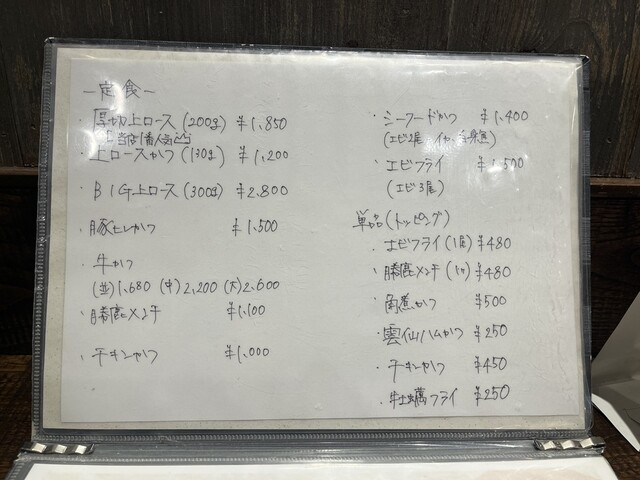 ー定食ー
・厚切上ロース(200g) ¥1,850
当店1番人気
・上ロースかつ(130g) ¥1,200
・BIG上ロース(300g) ¥2,800
・豚ヒレかつ ¥1,500
・牛かつ
(並)1,680 (中)2,200 (大)2,600
・勝鹿メンチ ¥1,100
・チキンかつ ¥1,000
・シーフードかつ ¥1,400
(エビ2尾、イカ、白身魚)
・エビフライ ¥1,500
(エビ3尾)
単品(トッピング)
・エビフライ(1尾) ¥480
・勝鹿メンチ(1ヶ) ¥480
・角煮かつ ¥500
・雲仙ハムかつ ¥250
・チキンかつ ¥450
・牡蠣フライ ¥250